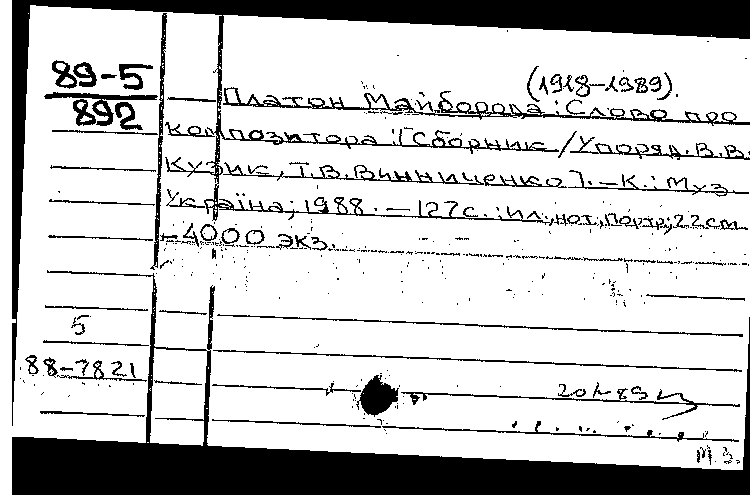 (1918-1989).
89-5
892
Платон Майборода: Слово про
композитора: [Сборник / Упоряд. В.В.
Кузик, Т.В. Винниченко]. - К.: Муз
Україна, 1988. - 127с.: ил., нот., портр.; 22 см
- 4000 экз.
5
88-7821
М.З.